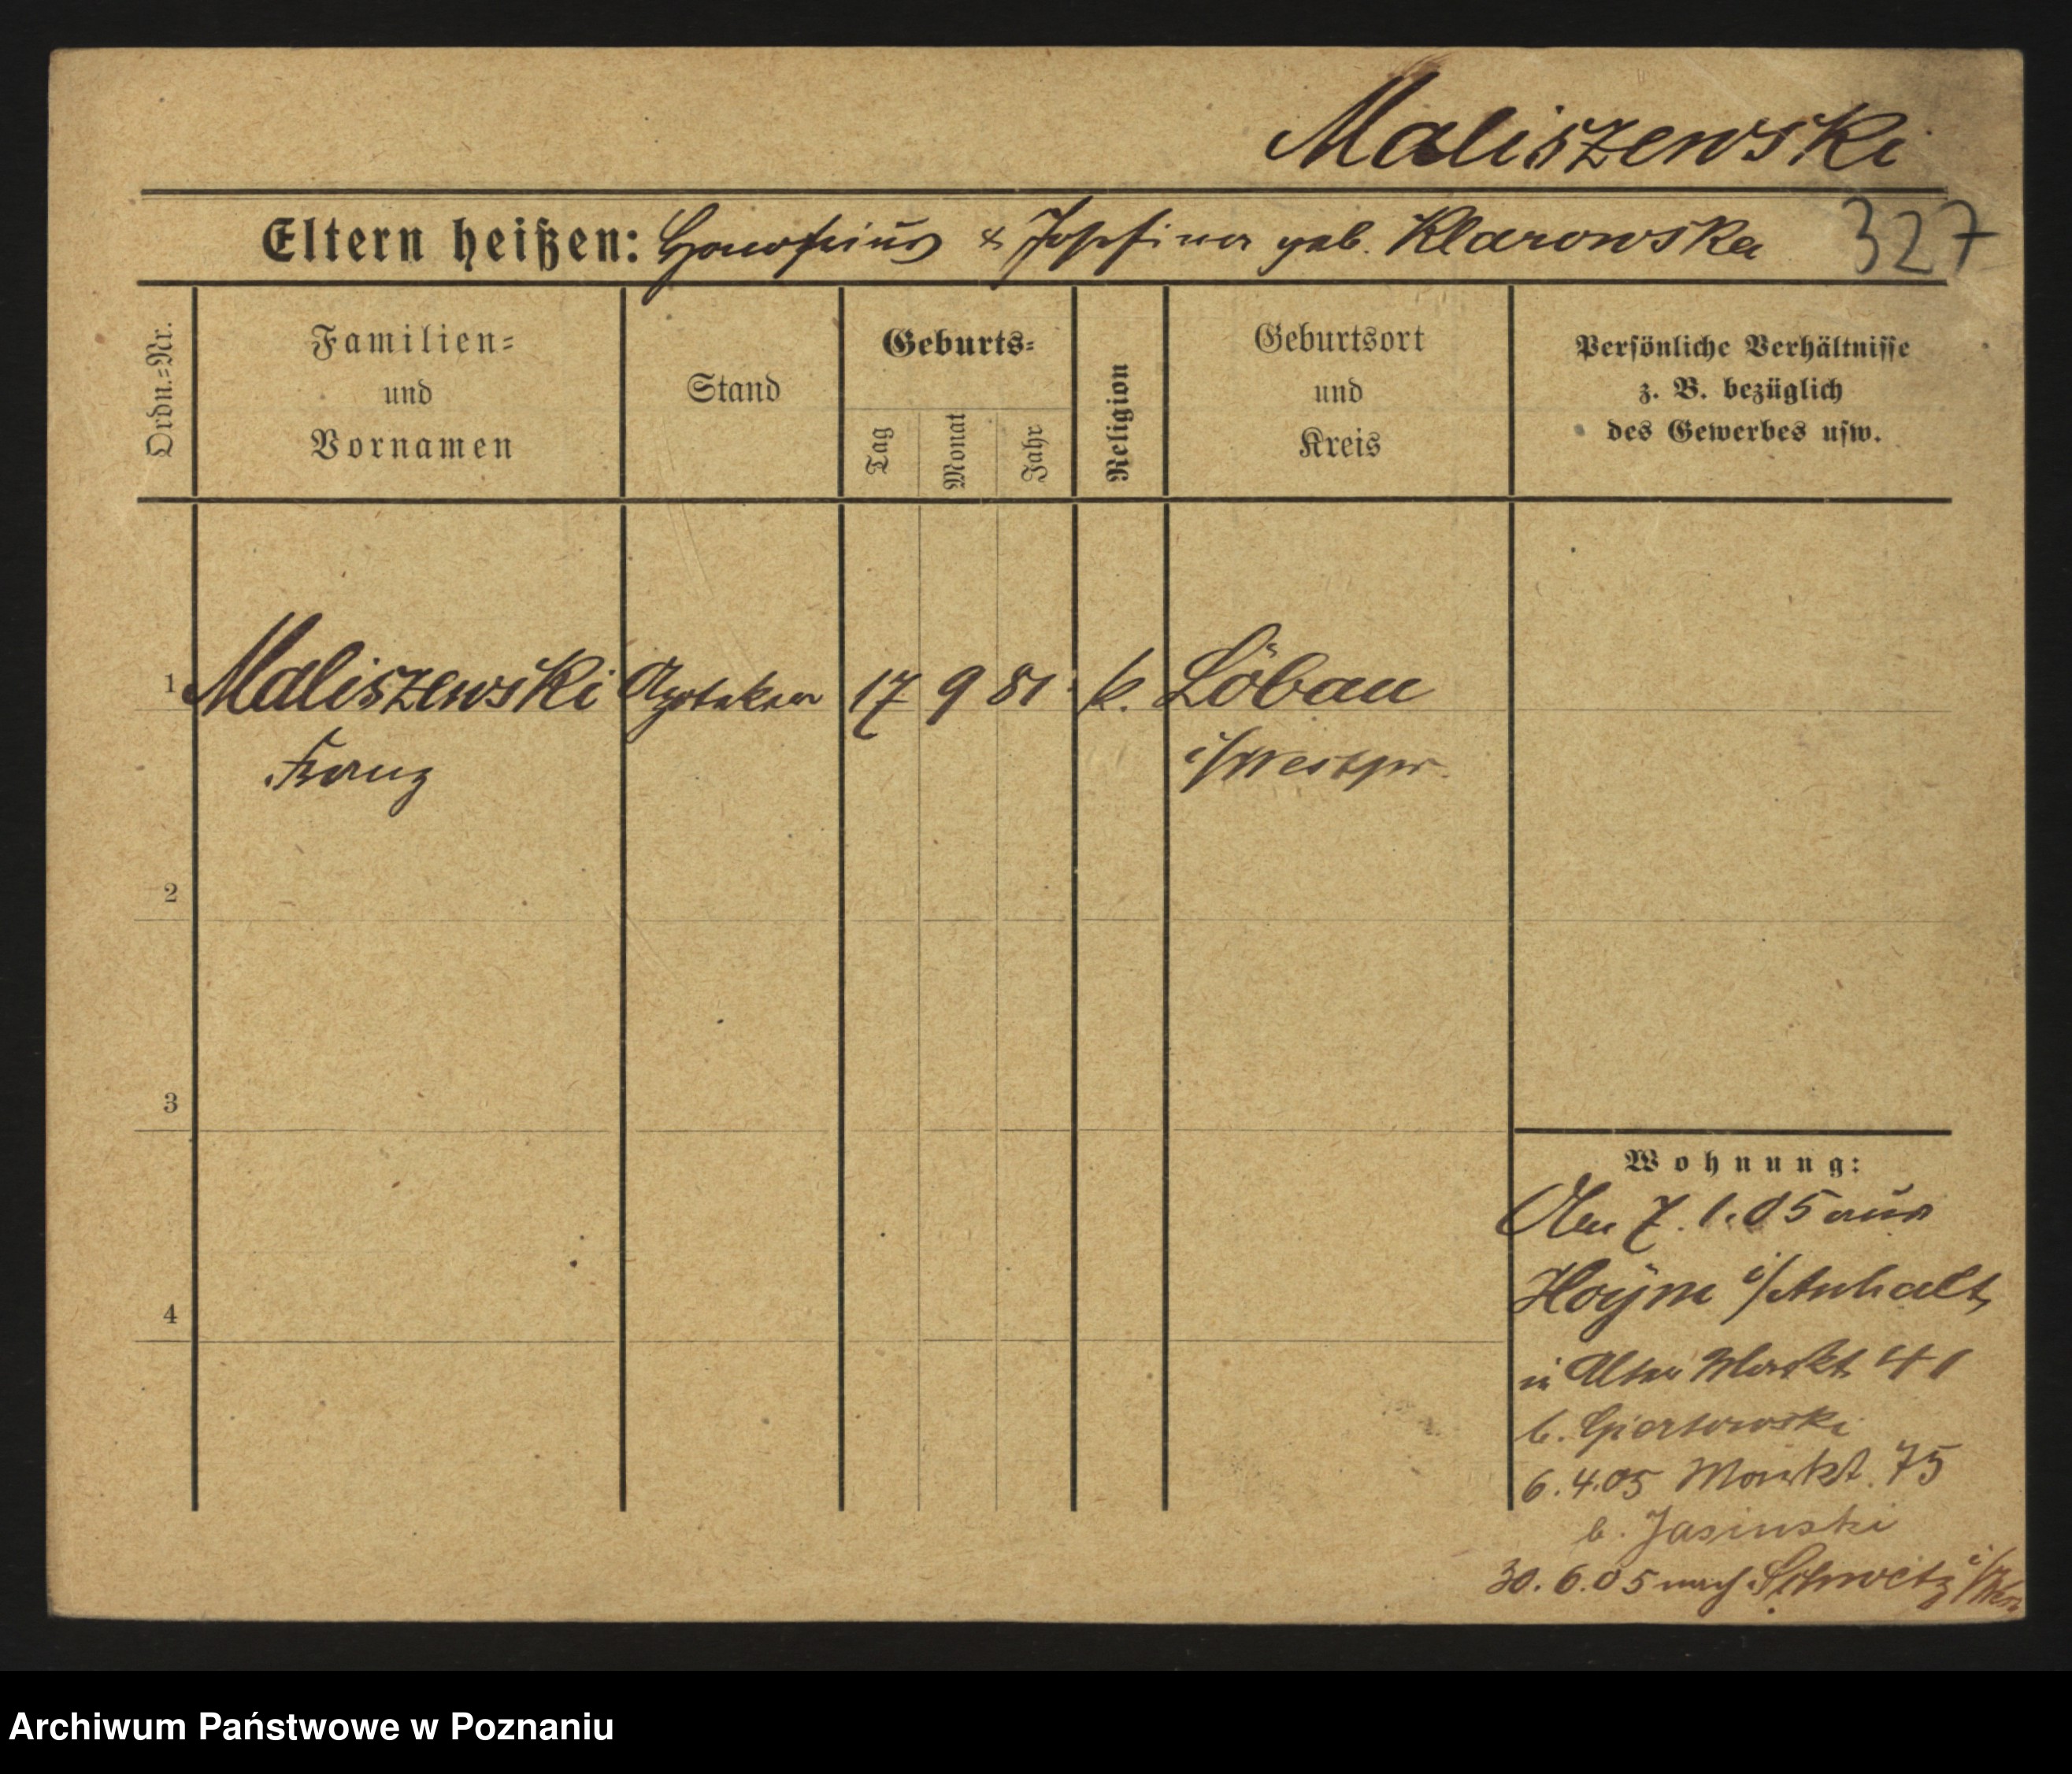 Maliszewski
Eltern heißen: & Josefina geb. Klarowska 327
Ordn.=Nr.
Familien=
und
Vornamen
Stand
Geburts=
Tag
Monat
Jahr
Religion
Geburtsort
und
Kreis
Persönliche Verhältnisse
z. B. bezüglich
des Gewerbes usw.
1 Maliszewski Apoteker 17 9 81 k. Löbau
Franz i/Westpr.
2
3
4
Wohnung:
7. 1. 05 aus
Hoÿm i/Anhalt
in Alter Markt 41
b.
6. 4. 05 Markt. 75
b. Jasinski
30. 6. 05 nach Schwetz
Archiwum Państwowe w Poznaniu